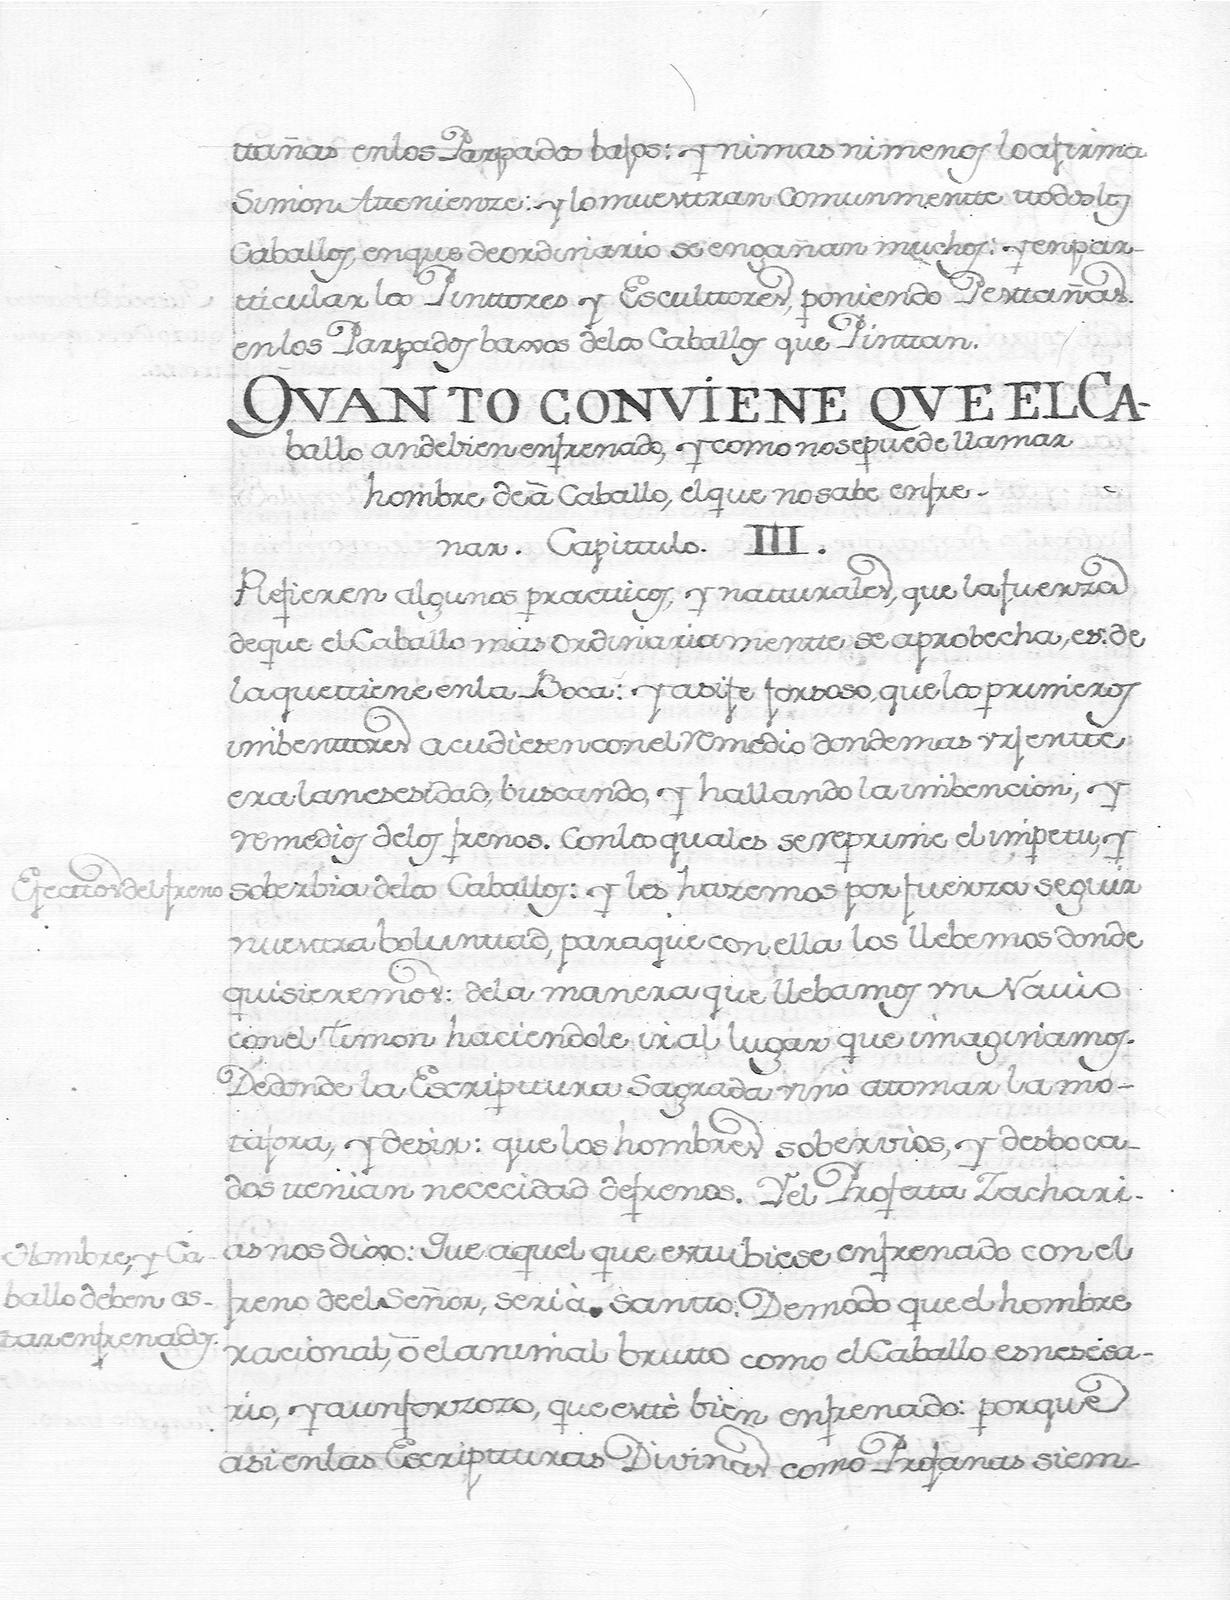 ttañas enlos Parpados bajos: y nimas nimenos loafirma
Simon Atteniense: y lo muestran comunmentte ttodos los
Caballos, enque deordinario se engañan muchos: y enpar-
tticular los Pinttores y Esculttores, poniendo Pestañas.
enlos Parpados baxos delos Caballos que Pinttan.
QVANTO CONVIENE QVE EL CA-
ballo andebien enfrenado, y como nosepuede llamar
hombre deâ Caballo, elque nosabe enfre-
nar. Capittulo. III.
Refieren algunos practticos, y natturales, que la fuerza
deque el Caballo mas ordinariamentte se aprobecha, es: de
laquettiene enla Boca: y asi fe forsoso, que los primeros
imbenttores acudiesen conel remedio donde mas vrjentte
era lanesesidad, buscando, y hallando la imbencion, y
remedios delos frenos. Conlos quales se reprime el impetu, y
Efecttos del freno
soberbia delos Caballos: y les haremos por fuerza seguir
nuestra boluntad, paraque con ella los llebemos donde
quisieremos: dela manera que llebamos vn Navio
conel Timon haciendole ir al lugar que imaginamos.
Dedonde la Escripttura Sagrada vino atomar la mo-
tafora, y desir: que los hombres sobervios, y desboca-
dos ttenian nececidad defrenos. Yel Profetta Zachari-
Hombre, y Ca-
ballo deben es-
tar enfrenados.
as nos dixo: Que aquel que esttubiese enfrenado con el
freno deel Señor, seria santto. Demodo que el hombre
racional, ô elanimal brutto como el Caballo es nesesa-
rio, y aun forzozo, que estté bien enfrenado: porque
asi enlas Escriptturas Divinas como Profanas siem-